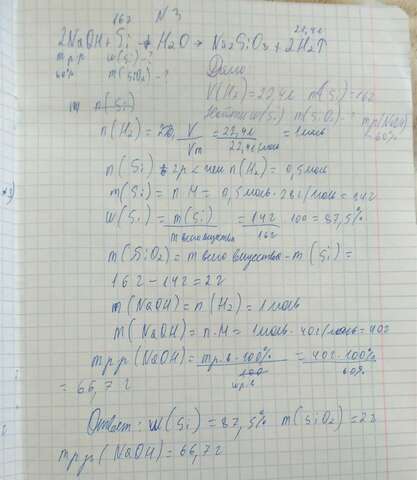 N 3
16г 22,4л
2NaOH + Si + H2O → Na2SiO3 + 2H2↑
mр.р w(Si) - ?
60% m(SiO2) - ?
Дано
V(H2) = 22,4л m(Si) = 16г
Найти w(Si) m(SiO2) - ? mр(NaOH) 60%
n(Si)
n(H2) = V/Vm = 22,4л/22,4л/моль = 1моль
n(Si) в 2р < чем n(H2) = 0,5моль
m(Si) = n·M = 0,5моль · 28г/моль = 14г
w(Si) = m(Si)/m всего вещества = 14г/16г · 100 = 87,5%
m(SiO2) = m всего вещества - m(Si) =
16г - 14г = 2г
m(NaOH) = n(H2) = 1моль
m(NaOH) = n·M = 1моль · 40г/моль = 40г
mр.р(NaOH) = mр.в·100%/ωр.в = 40г·100%/60%
= 66,7г
Ответ: w(Si) = 87,5% m(SiO2) = 2г
mр.р(NaOH) = 66,7г